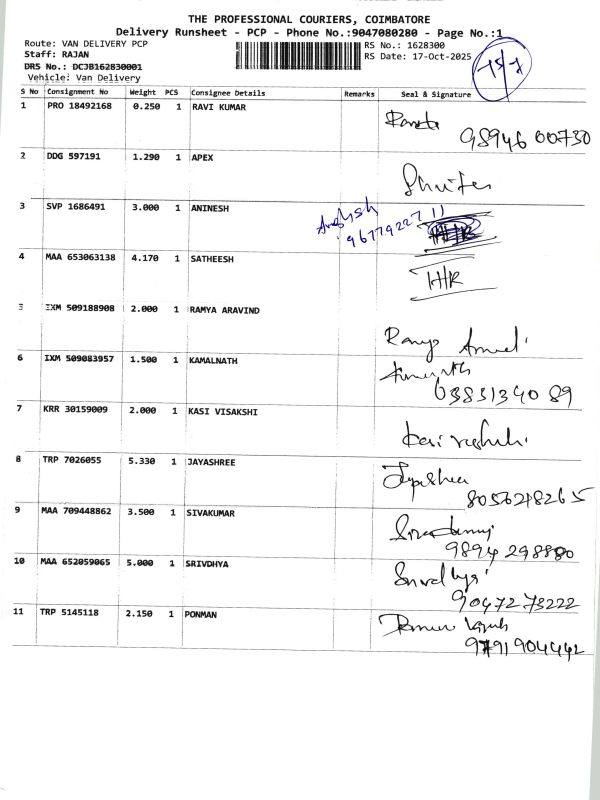 THE PROFESSIONAL COURIERS, COIMBATORE
Delivery Runsheet - PCP - Phone No.:9047080280 - Page No.:1
Route: VAN DELIVERY PCP
RS No.: 1628300
Staff: RAJAN
RS Date: 17-Oct-2025
DRS No.: DCJB162830001
Vehicle: Van Delivery
S No Consignment No Weight PCS Consignee Details Remarks Seal & Signature
1 PRO 18492168 0.250 1 RAVI KUMAR
98946 00730
2 DDG 597191 1.290 1 APEX
3 SVP 1686491 3.000 1 ANINESH
9677922711
4 MAA 653063138 4.170 1 SATHEESH
5 IXM 509188908 2.000 1 RAMYA ARAVIND
6 IXM 509083957 1.500 1 KAMALNATH
63831340 89
7 KRR 30159009 2.000 1 KASI VISAKSHI
8 TRP 7026055 5.330 1 JAYASHREE
Jayashree
8056218265
9 MAA 709448862 3.500 1 SIVAKUMAR
9894 298880
10 MAA 652059065 5.000 1 SRIVDHYA
90472 73222
11 TRP 5145118 2.150 1 PONMAN
9791904442